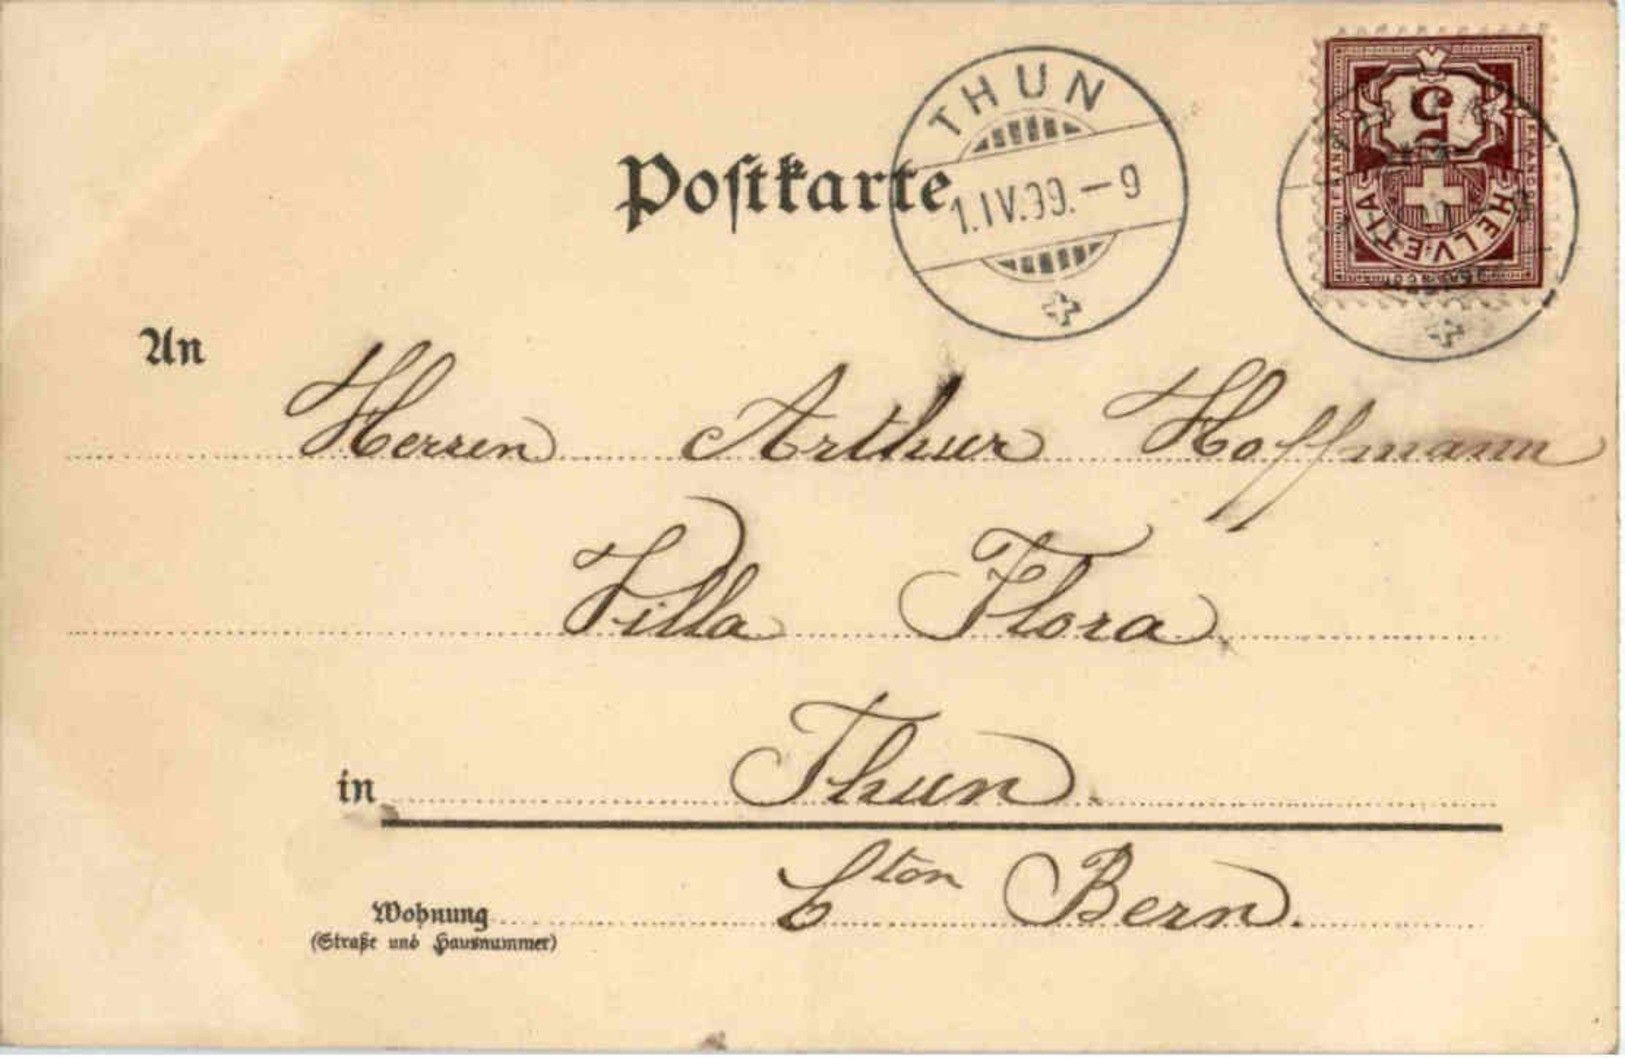 THUN
1.IV.99.-9
Postkarte
5
FRANCO
FRANCO
HELVETIA
An
Herren Arthur Hoffmann
Villa Flora
in Thun.
Cton Bern.
Wohnung
(Straße und Hausnummer)